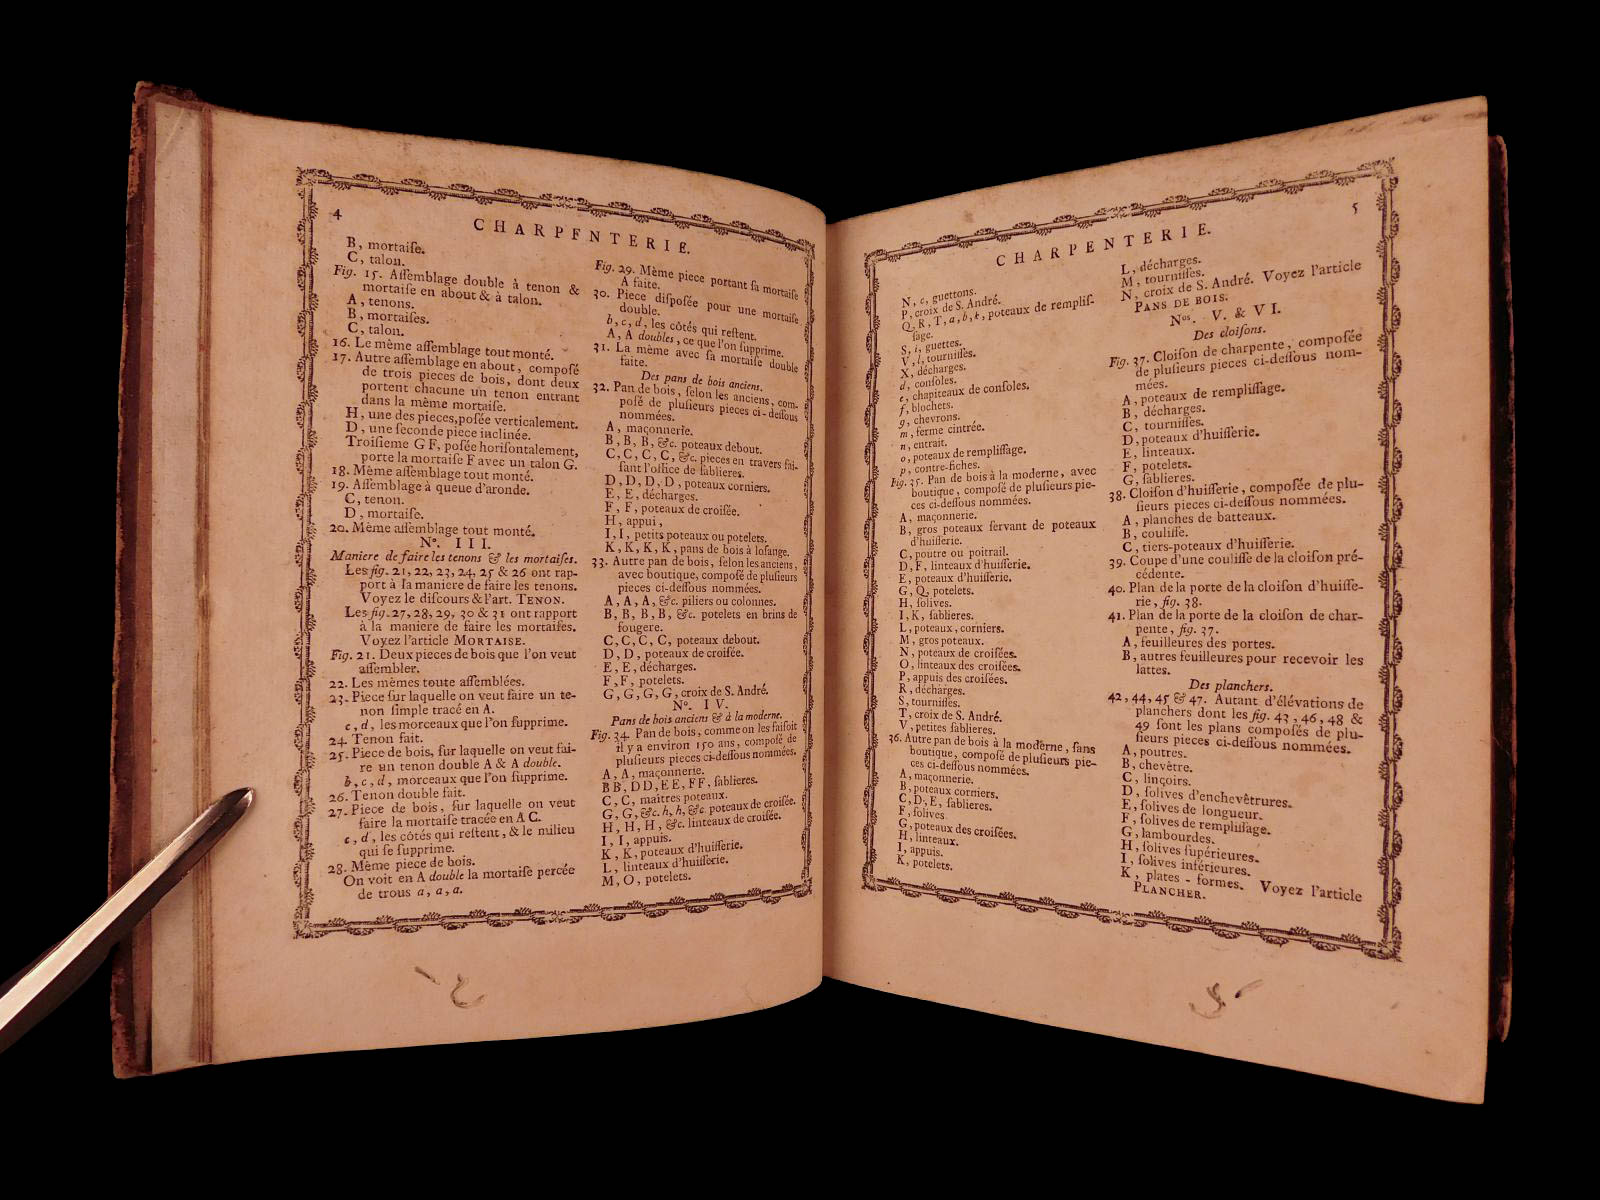 4
CHARPENTERIE.
B, mortaiſe.
C, talon.
Fig. 15. Aſſemblage double à tenon &
mortaiſe en about & à talon.
A, tenons.
B, mortaiſes.
C, talon.
16. Le même aſſemblage tout monté.
17. Autre aſſemblage en about, compoſé
de trois pieces de bois, dont deux
portent chacune un tenon entrant
dans la même mortaiſe.
H, une des pieces, poſée verticalement.
D, une ſeconde piece inclinée.
Troiſieme G F, poſée horiſontalement,
porte la mortaiſe F avec un talon G.
18. Même aſſemblage tout monté.
19. Aſſemblage à queue d'aronde.
C, tenon.
D, mortaiſe.
20. Même aſſemblage tout monté.
Nº. III.
Maniere de faire les tenons & les mortaiſes.
Les fig. 21, 22, 23, 24, 25 & 26 ont rap-
port à la maniere de faire les tenons.
Voyez le diſcours & l'art. TENON.
Les fig. 27, 28, 29, 30 & 31 ont rapport
à la maniere de faire les mortaiſes.
Voyez l'article MORTAISE.
Fig. 21. Deux pieces de bois que l'on veut
aſſembler.
22. Les mêmes toute aſſemblées.
23. Piece ſur laquelle on veut faire un te-
non ſimple tracé en A.
c, d, les morceaux que l'on ſupprime.
24. Tenon fait.
25. Piece de bois, ſur laquelle on veut fai-
re un tenon double A & A double.
b, c, d, morceaux que l'on ſupprime.
26. Tenon double fait.
27. Piece de bois, ſur laquelle on veut
faire la mortaiſe tracée en A C.
c, d, les côtés qui reſtent, & le milieu
qui ſe ſupprime.
28. Même piece de bois.
On voit en A double la mortaiſe percée
de trous a, a, a.
Fig. 29. Même piece portant ſa mortaiſe
A faite.
30. Piece diſpoſée pour une mortaiſe
double.
b, c, d, les côtés qui reſtent.
A, A doubles, ce que l'on ſupprime.
31. La même avec ſa mortaiſe double
faite.
Des pans de bois anciens.
32. Pan de bois, ſelon les anciens, com-
poſé de pluſieurs pieces ci-deſſous
nommées.
A, maçonnerie.
B, B, B, &c. poteaux debout.
C, C, C, C, &c. pieces en travers fai-
ſant l'office de ſablieres.
D, D, D, D, poteaux corniers.
E, E, décharges.
F, F, poteaux de croiſée.
H, appui,
I, I, petits poteaux ou potelets.
K, K, K, K, pans de bois à loſange.
33. Autre pan de bois, ſelon les anciens,
avec boutique, compoſé de pluſieurs
pieces ci-deſſous nommées.
A, A, A, &c. piliers ou colonnes.
B, B, B, B, &c. potelets en brins de
fougere.
C, C, C, C, poteaux debout.
D, D, poteaux de croiſée.
E, E, décharges.
F, F, potelets.
G, G, G, G, croix de S. André.
Nº. IV.
Pans de bois anciens & à la moderne.
Fig. 34. Pan de bois, comme on les faiſoit
il y a environ 150 ans, compoſé de
pluſieurs pieces ci-deſſous nommées.
A, A, maçonnerie.
BB, DD, EE, FF, ſablieres.
C, C, maîtres poteaux.
G, G, &c. h, h, &c. poteaux de croiſée.
H, H, H, &c. linteaux de croiſée.
I, I, appuis.
K, K, poteaux d'huiſſerie.
L, linteaux d'huiſſerie.
M, O, potelets.
5
CHARPENTERIE.
N, c, guettons.
P, croix de S. André.
Q, R, T, a, b, k, poteaux de rempliſ-
ſage.
S, i, guettes.
V, l, tourniſſes.
X, décharges.
d, conſoles.
e, chapiteaux de conſoles.
f, blochets.
g, chevrons.
m, ferme cintrée.
n, entrait.
o, poteaux de rempliſſage.
p, contre-fiches.
Fig. 35. Pan de bois à la moderne, avec
boutique, compoſé de pluſieurs pie-
ces ci-deſſous nommées.
A, maçonnerie.
B, gros poteaux ſervant de poteaux
d'huiſſerie.
C, poutre ou poitrail.
D, F, linteaux d'huiſſerie.
E, poteaux d'huiſſerie.
G, Q, potelets.
H, ſolives.
I, K, ſablieres.
L, poteaux, corniers.
M, gros poteaux.
N, poteaux de croiſées.
O, linteaux des croiſées.
P, appuis des croiſées.
R, décharges.
S, tourniſſes.
T, croix de S. André.
V, petites ſablieres.
36. Autre pan de bois à la moderne, ſans
boutique, compoſé de pluſieurs pie-
ces ci-deſſous nommées.
A, maçonnerie.
B, poteaux corniers.
C, D, E, ſablieres.
F, ſolives
G, poteaux des croiſées.
H, linteaux.
I, appuis.
K, potelets.
L, décharges.
M, tourniſſes.
N, croix de S. André. Voyez l'article
PANS DE BOIS.
Nos. V. & VI.
Des cloiſons.
Fig. 37. Cloiſon de charpente, compoſée
de pluſieurs pieces ci-deſſous nom-
mées.
A, poteaux de rempliſſage.
B, décharges.
C, tourniſſes.
D, poteaux d'huiſſerie.
E, linteaux.
F, potelets.
G, ſablieres.
38. Cloiſon d'huiſſerie, compoſée de plu-
ſieurs pieces ci-deſſous nommées.
A, planches de batteaux.
B, couliſſe.
C, tiers-poteaux d'huiſſerie.
39. Coupe d'une couliſſe de la cloiſon pré-
cédente.
40. Plan de la porte de la cloiſon d'huiſſe-
rie, fig. 38.
41. Plan de la porte de la cloiſon de char-
pente, fig. 37.
A, feuilleures des portes.
B, autres feuilleures pour recevoir les
lattes.
Des planchers.
42, 44, 45 & 47. Autant d'élévations de
planchers dont les fig. 43, 46, 48 &
49 ſont les plans compoſés de plu-
ſieurs pieces ci-deſſous nommées.
A, poutres.
B, chevêtre.
C, linçoirs.
D, ſolives d'enchevêtrures.
E, ſolives de longueur.
F, ſolives de rempliſſage.
G, lambourdes.
H, ſolives ſupérieures.
I, ſolives inférieures.
K, plates - formes. Voyez l'article
PLANCHER.